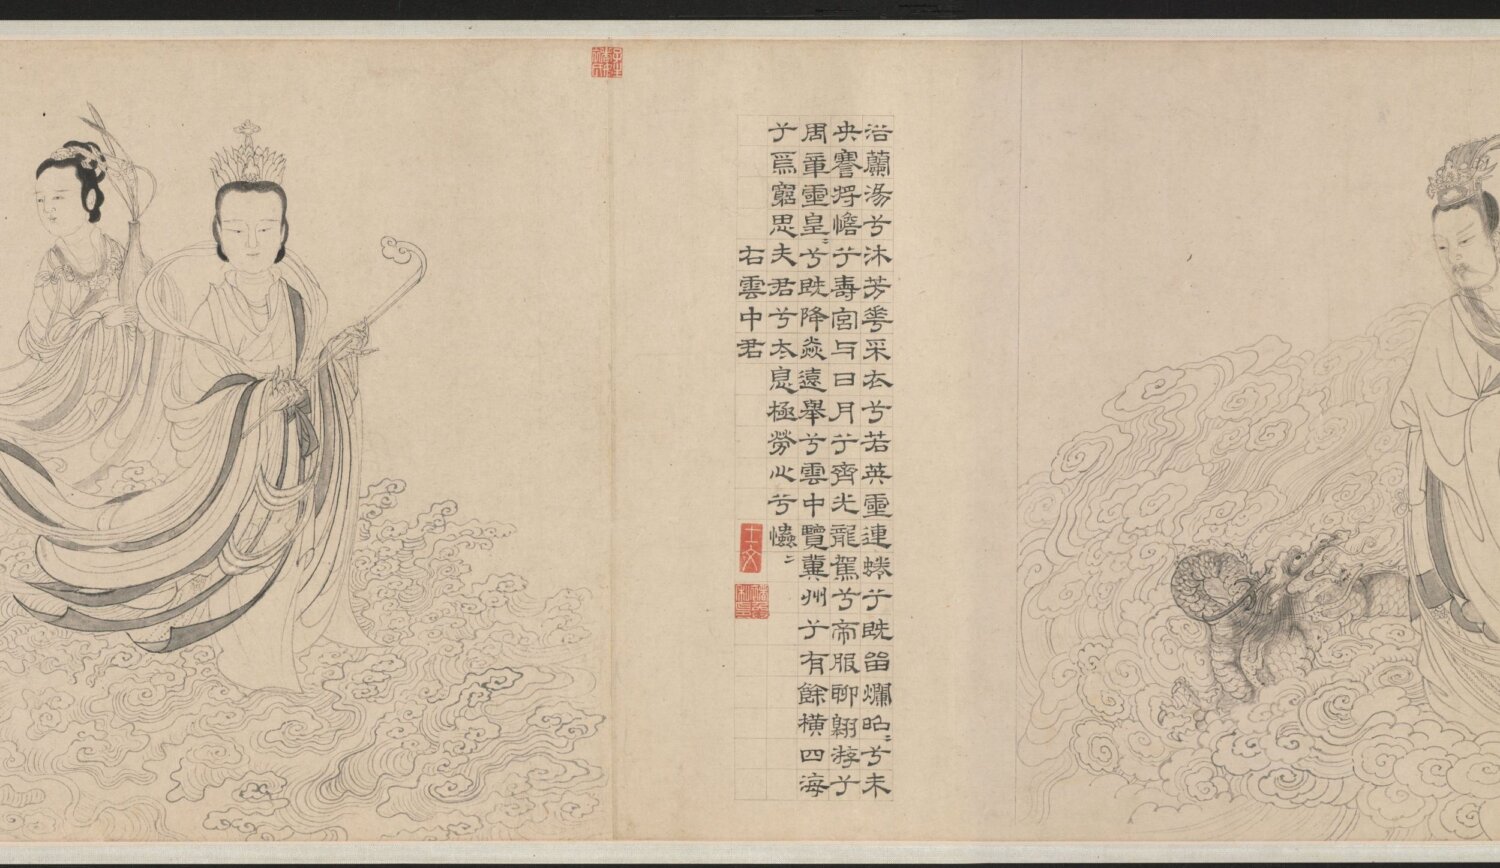 浴蘭湯兮沐芳華采衣兮若英靈連蜷兮既留爛昭〻兮未
央謇将憺兮壽宮与日月兮齊光龍駕兮帝服聊翱游兮
周章靈皇〻兮既降猋遠舉兮雲中覽冀州兮有餘橫四海
兮焉窮思夫君兮太息極勞心兮𢥞〻
右雲中君